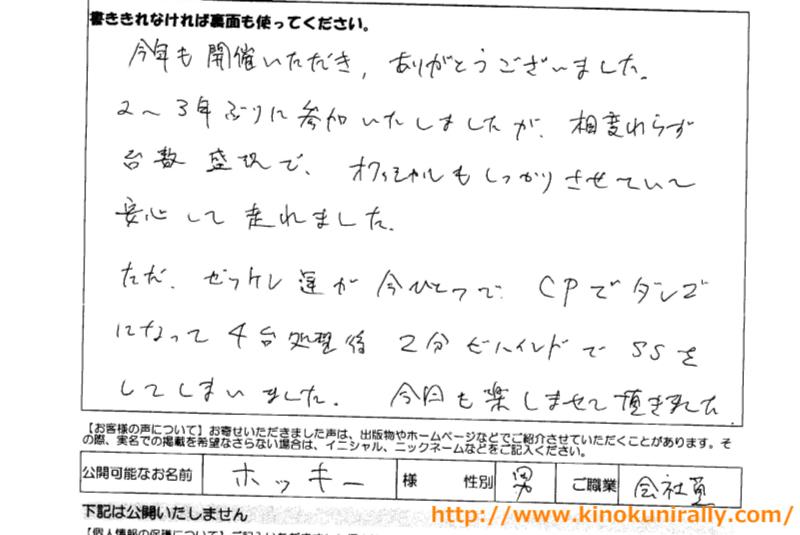 書ききれなければ裏面も使ってください。
今年も開催いただき、ありがとうございました。
2〜3年ぶりに参加いたしましたが、相変わらず
台数盛況で、オフィシャルもしっかりさせていて
安心して走れました。
ただ、ゼッケン運が今ひとつで、CPでダンゴ
になって4台処理後2分ビハインドでSSを
してしまいました。今回も楽しませて頂きました
【お客様の声について】お寄せいただきました声は、出版物やホームページなどでご紹介させていただくことがあります。そ
の際、実名での掲載を希望なさらない場合は、イニシャル、ニックネームなどをご記入ください。
公開可能なお名前 ホッキー 様 性別 男 ご職業 会社員
下記は公開いたしません
http://www.kinokunirally.com/